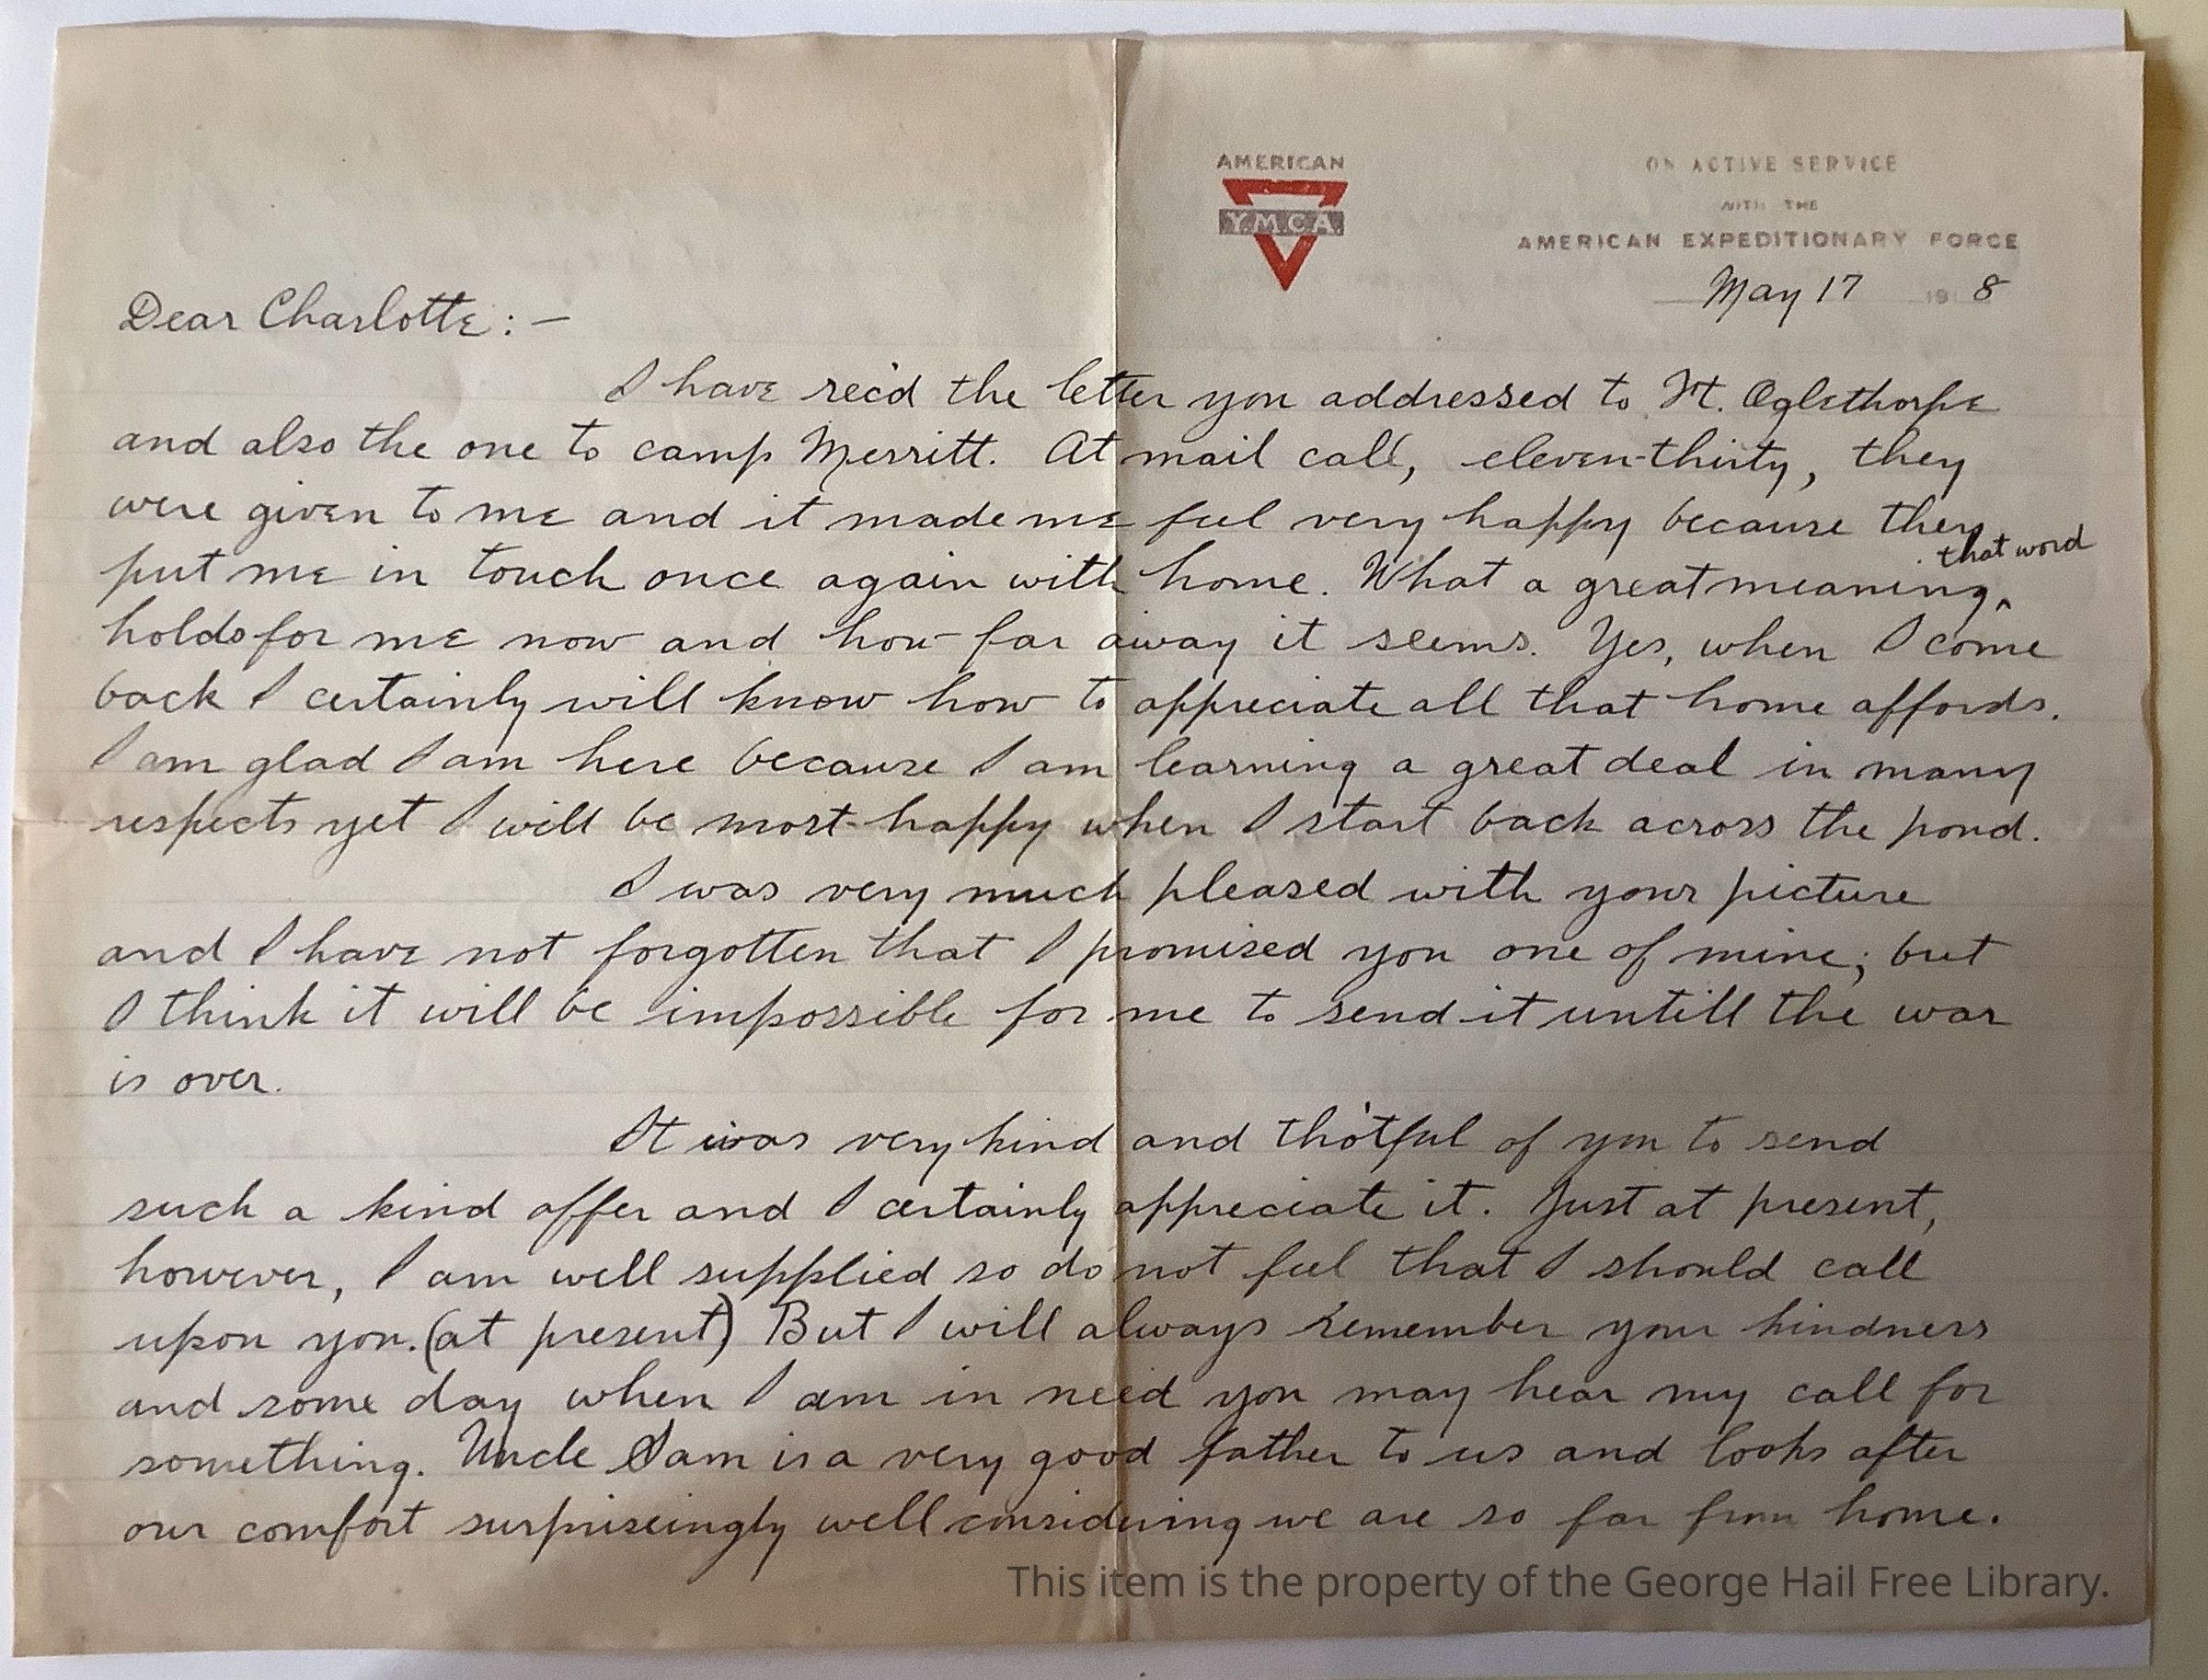 AMERICAN
YMCA
ON ACTIVE SERVICE
WITH THE
AMERICAN EXPEDITIONARY FORCE
May 17 191 8
Dear Charlotte: -
I have rec'd the letter you addressed to Ft. Oglethorpe
and also the one to camp Merritt. At mail call, eleven-thirty, they
were given to me and it made me feel very happy because they
put me in touch once again with home. What a great meaning ^ that word
holds for me now and how far away it seems. Yes, when I come
back I certainly will know how to appreciate all that home affords.
I am glad I am here because I am learning a great deal in many
respects yet I will be most happy when I start back across the pond.
I was very much pleased with your picture
and I have not forgotten that I promised you one of mine; but
I think it will be impossible for me to send it untill the war
is over.
It was very kind and tho'tful of you to send
such a kind offer and I certainly appreciate it. Just at present,
however, I am well supplied so do not feel that I should call
upon you. (at present) But I will always remember your kindness
and some day when I am in need you may hear my call for
something. Uncle Sam is a very good father to us and looks after
our comfort surpriseingly well considering we are so far from home.
This item is the property of the George Hail Free Library.